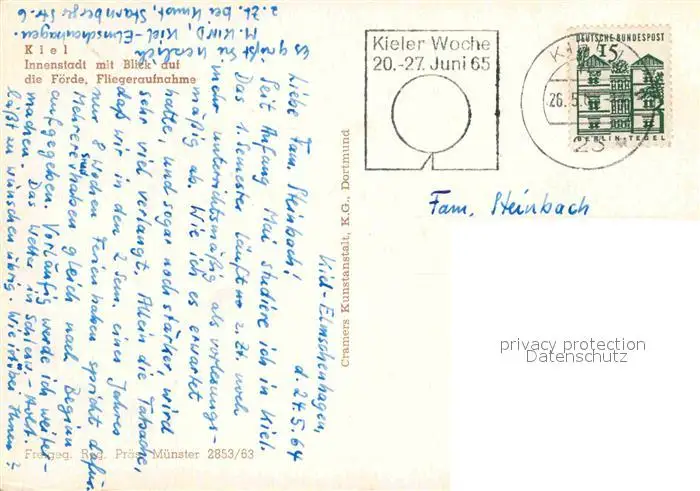 Kiel
Innenstadt mit Blick auf
die Förde, Fliegeraufnahme
Kieler Woche
20.-27. Juni 65
DEUTSCHE BUNDESPOST
15
BERLIN-TEGEL
KIEL
26.5.6
23
Fam. Steinbach
privacy protection
Datenschutz
Cramers Kunstanstalt, K.G., Dortmund
Kiel-Elmschenhagen,
d. 24.5.64
Liebe Fam. Steinbach!
Seit Anfang Mai studiere ich in Kiel.
Das 1. Semester läuft z. Zt. noch
mehr unterrichtsmäßig als vorlesungs-
mäßig ab. Wie ich es erwartet
hatte, und sogar noch stärker, wird
sehr viel verlangt. Allein die Tatsache,
daß wir in den 2 Sem. eines Jahres
nur 8 Wochen Ferien haben spricht dafür.
Mehrere haben sind gleich nach Beginn
aufgegeben. Vorläufig werde ich weiter-
machen. Das Wetter in Schlesw.-Holst.
läßt zu wünschen übrig. Wie ist's bei Ihnen?
Es grüßt Sie herzlich
M. KIND, Kiel-Elmschenhagen,
z. Zt. bei Kunst, Starnberger Str. 6
Freigeg. Reg. Präs. Münster 2853/63